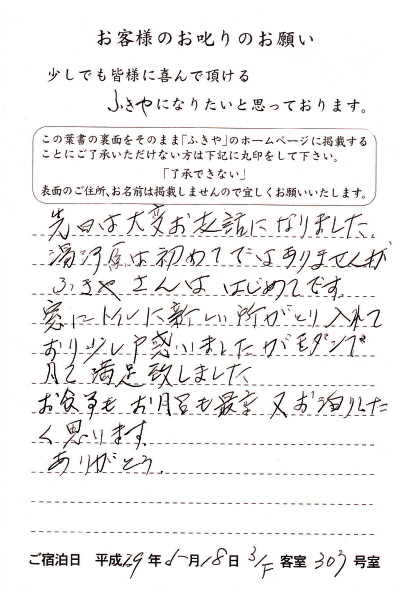 お客様のお叱りのお願い
少しでも皆様に喜んで頂ける
ふきやになりたいと思っております。
この葉書の裏面をそのまま「ふきや」のホームページに掲載する
ことにご了承いただけない方は下記に丸印をして下さい。
「了承できない」
表面のご住所、お名前は掲載しませんので宜しくお願いいたします。
先日は大変お世話になりました。
湯河原は初めてではありませんが
ふきやさんは はじめてです。
窓にトイレに新しい所がとり入れて
おり少し戸惑いましたがモダンで
満足致しました
お食事も お風呂も最高 又お泊りした
く思います。
ありがとう。
ご宿泊日 平成29年 月18日 3/F 客室 303号室